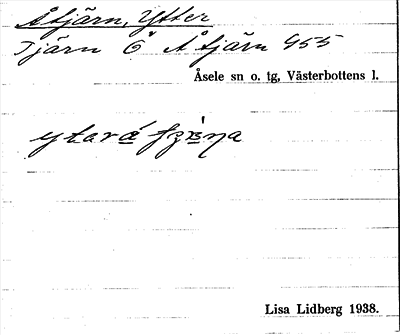 Åtjärn, Ytter
Tjärn Ö Åtjärn 955
Åsele sn o. tg, Västerbottens l.
Lisa Lidberg 1938.